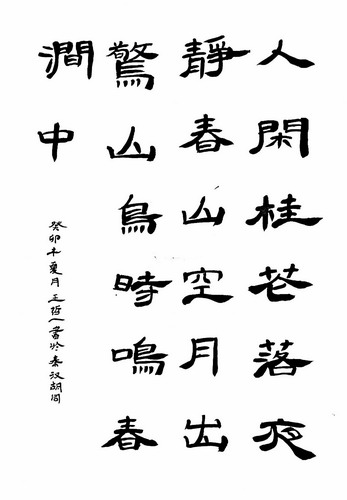 人閑桂花落夜
靜春山空月出
驚山鳥時鳴春
澗中
癸卯年夏月王哲人書於秦汉胡同